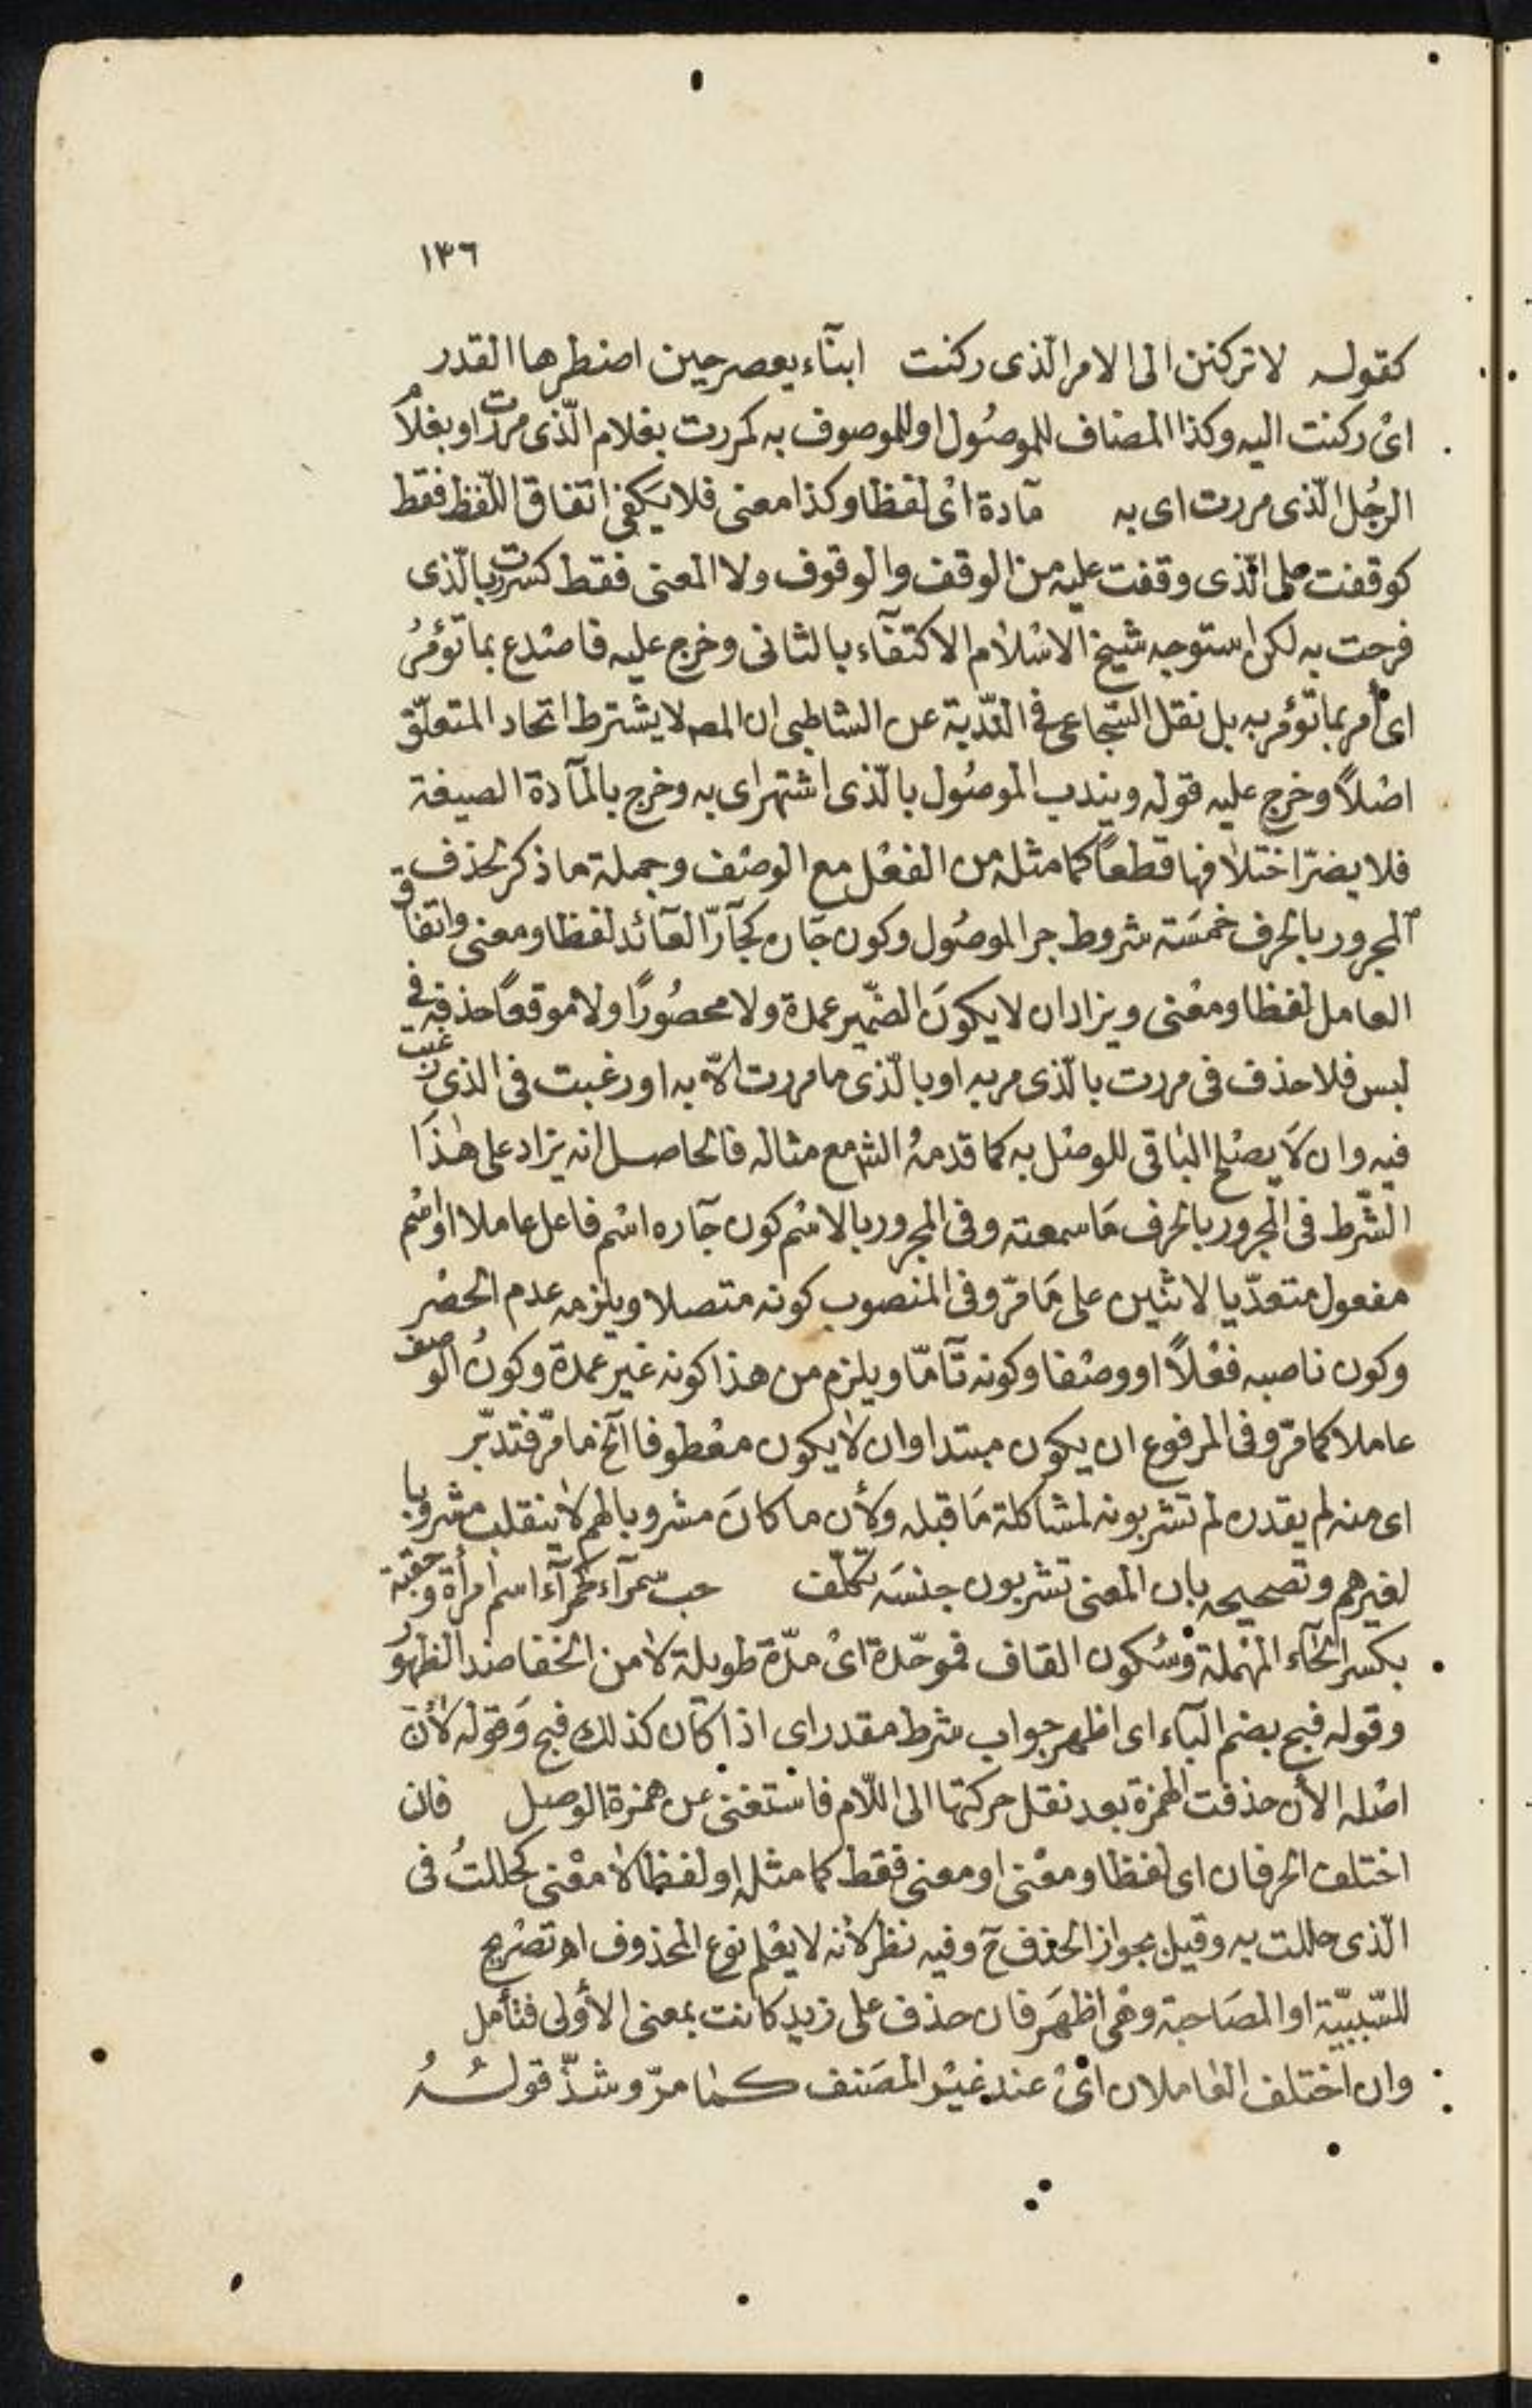 ١٣٦
كقوله لا تركنن الى الامر الّذى ركنت ابنآء يعصر حين اضطرها القدر
اىْ ركنت اليه وكذا المضاف للموصُول او للموصوف به كمررت بغلام الّذى مررت او بغلام
الرجُل الّذى مررت اى به مآدة اىْ لفظا وكذا معنى فلا يكفى اتفاق اللّفظ فقط
كوقفت على الّذى وقفت عليه من الوقف والوقوف ولا المعنى فقط كسررت بالّذى
فرحت به لكن استوجه شيخ الاسْلام الاكتفآء بالثانى وخرج عليه فاصْدع بما تؤمرُ
اى أمر بما تؤمر به بل نقل السّجاعى فى النّدبة عن الشاطبى ان المصـ لا يشترط اتحاد المتعلّق
اصْلاً وخرج عليه قوله ويندب الموصُول بالّذى اشتهر اى به وخرج بالمآدة الصيغة
فلا يضرّ اختلافها قطعاً كما مثله من الفعْل مع الوصْف وجملة ما ذكر لحذف
المجرور بالحرف خمسَة شروط جر الموصُول وكون جَاره كجآرّ العآئد لفظا ومعنى واتفاق
العامل لفظا ومعْنى ويزاد ان لا يكونَ الضّمير عمدة ولا محصُورًا ولا موقعًا حذفه فى
لبس فلا حذف فى مررت بالّذى مر به او بالّذى ما مررت الّا به او رغبت فى الذى رغبت
فيه وان لَا يصْلح البَاقى للوصْل به كما قدمهُ الشـ مع مثاله فالحاصل انه يزاد على هٰذَا
الشّرط فى المجرور بالحرف مَا سمعته وفى المجرور بالاسْم كون جآره اسْم فاعل عاملا او اسْم
مفعول متعدّيا لاثنين على مَا مرّ وفى المنصوب كونه متصلا ويلزمه عدم الحصْر
وكون ناصبه فعْلاً او وصْفا وكونه تآمّا ويلزم من هذا كونه غير عمدة وكونُ الوصف
عاملا كما مرّ وفى المرفوع ان يكون مبتدا وان لا يكون معْطوفا آلخ ما مرّ فتدبّر
اى منه لم يقدره لم تشربونه لمشاكلة مَا قبله ولأن ما كانَ مشروبا لهم لا ينقلب مشروبا
لغيرهم وتصحيحه بان المعنى تشربون جنسَه تكلّف حب سمرآء كحمرآء اسم امرأة وحقبة
بكسر الحآء المهْملة وسُكون القاف فموحّدة اىْ مدّة طويلة لا من الخفا ضد الظهور
وقوله فبح بضم البآء اى اظهر جواب شرط مقدر اى اذا كآن كذلك فبح وَقوله لأنّ
اصْله الأن حذفت الهمزة بعد نقل حركتها الى اللّام فاستغنى عن همزة الوصل فان
اختلف الحرفان اى لفظا ومعْنى او معنى فقط كما مثله او لفظا لا معْنى كحللتُ فى
الّذى حللت به وقيل بجواز الحذف ح وفيه نظر لأنه لا يعْلم نوع المحذوف اهـ تصْريح
للسّببيّة او المصَاحبة وهْى اظهَر فان حذف على زيد كانت بمعنى الأولى فتأمل
وان اختلف العَاملان اىْ عند غيْر المصَنف كما مرّ وشذّ قولهُ